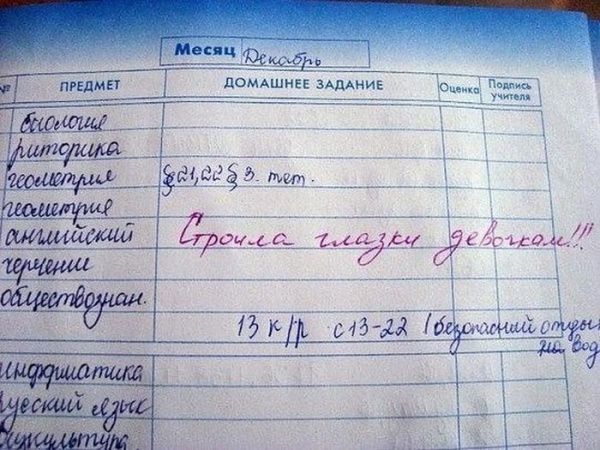 Месяц Декабрь
№ ПРЕДМЕТ ДОМАШНЕЕ ЗАДАНИЕ Оценка Подпись учителя
биология
риторика
геометрия §21,22 § 3. тет.
геометрия
английский Строила глазки девочкам!!!
черчение
обществознан.
13 к/р с13-22 (безопасний отды
на вод
информатика
русский язык
физкультура